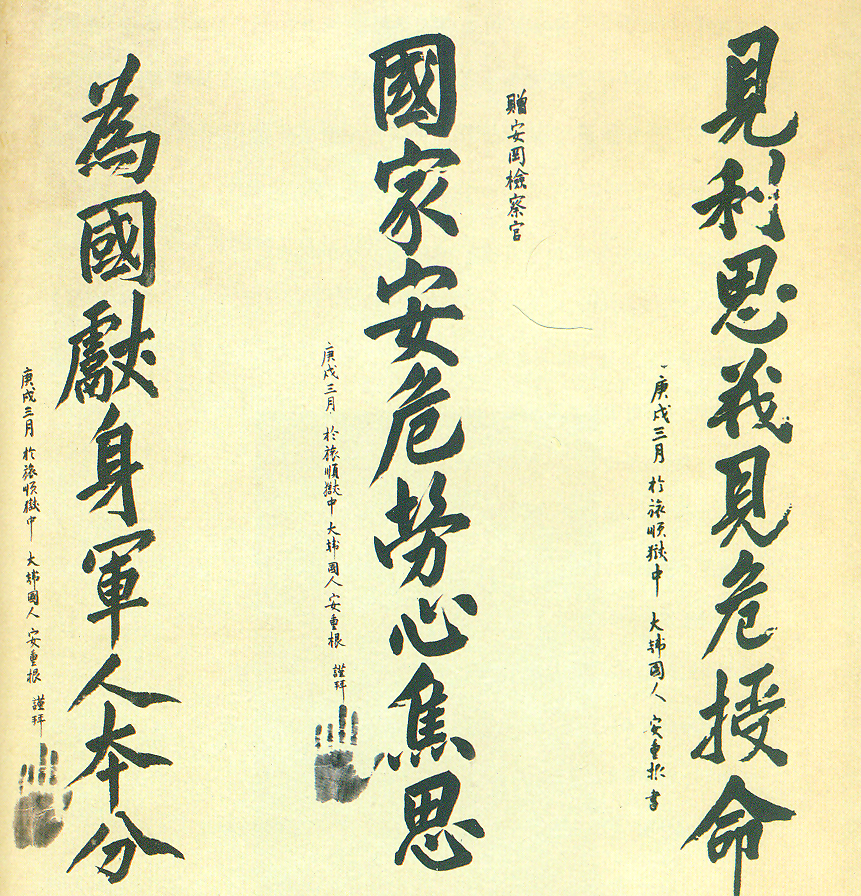 見利思義見危授命
庚戌三月 於旅順獄中 大韓國人 安重根 書
贈安岡檢察官
國家安危勞心焦思
庚戌三月 於旅順獄中 大韓國人 安重根 謹拜
為國獻身軍人本分
庚戌三月 於旅順獄中 大韓國人 安重根 謹拜